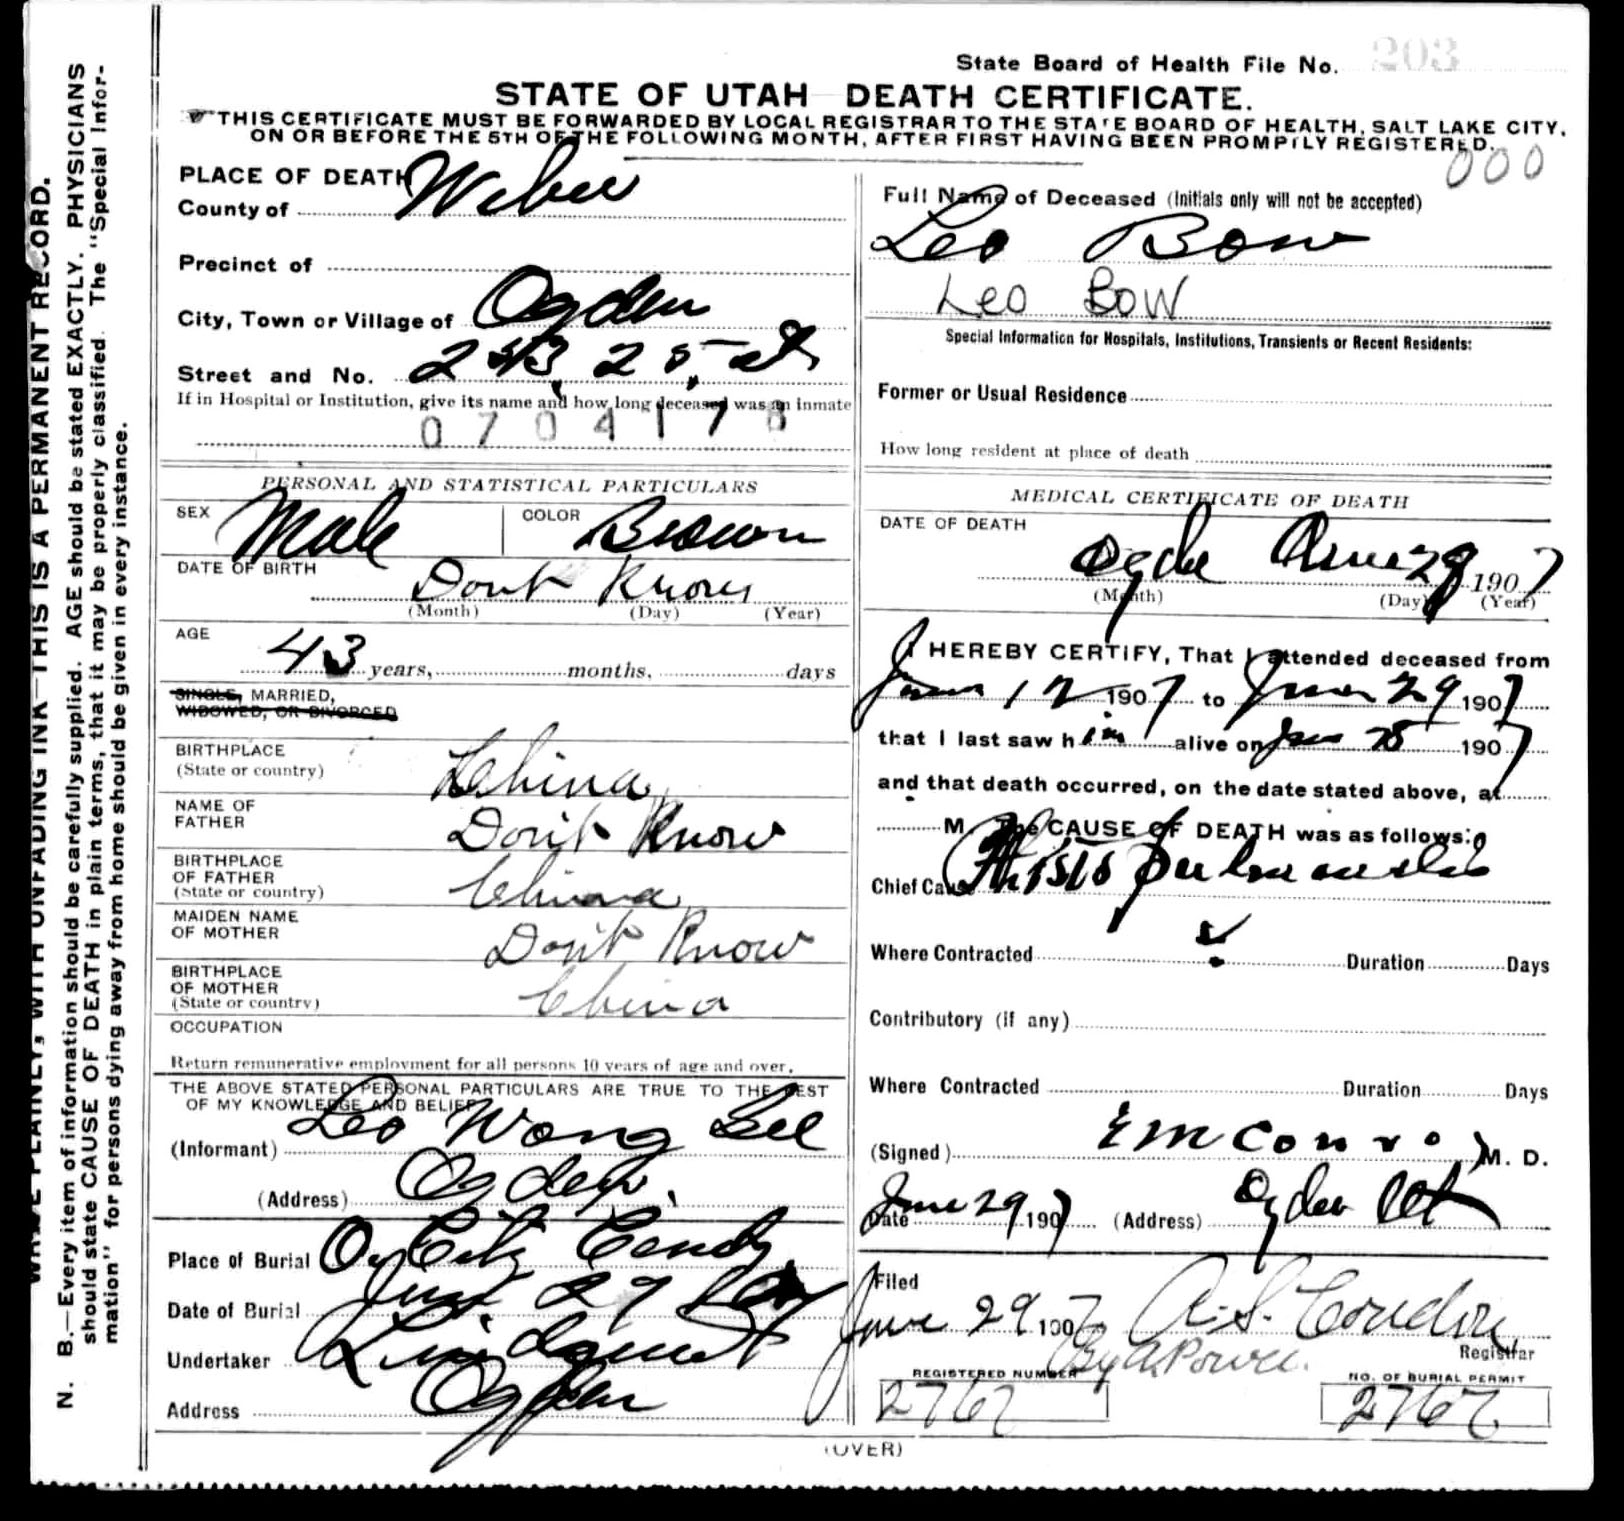 State Board of Health File No. 203
STATE OF UTAH DEATH CERTIFICATE.
THIS CERTIFICATE MUST BE FORWARDED BY LOCAL REGISTRAR TO THE STATE BOARD OF HEALTH, SALT LAKE CITY,
ON OR BEFORE THE 5TH OF THE FOLLOWING MONTH, AFTER FIRST HAVING BEEN PROMPTLY REGISTERED.
000
PLACE OF DEATH
County of Weber
Precinct of
City, Town or Village of Ogden
Street and No. 25 st
If in Hospital or Institution, give its name and how long deceased was an inmate
0704178
PERSONAL AND STATISTICAL PARTICULARS
SEX Male COLOR Brown
DATE OF BIRTH Dont Know
(Month) (Day) (Year)
AGE
43 years, months, days
SINGLE, MARRIED,
WIDOWED, OR DIVORCED
BIRTHPLACE
(State or country) China
NAME OF
FATHER Don't Know
BIRTHPLACE
OF FATHER
(State or country) China
MAIDEN NAME
OF MOTHER Don't Know
BIRTHPLACE
OF MOTHER
(State or country) China
OCCUPATION
Return remunerative employment for all persons 10 years of age and over.
THE ABOVE STATED PERSONAL PARTICULARS ARE TRUE TO THE BEST
OF MY KNOWLEDGE AND BELIEF
(Informant) Leo Wong Lee
(Address) Ogden.
Place of Burial O. City Cemty
Date of Burial June 29
Undertaker Lindquist
Address Ogden
Full Name of Deceased (Initials only will not be accepted)
Leo Bow
Leo Bow
Special Information for Hospitals, Institutions, Transients or Recent Residents:
Former or Usual Residence
How long resident at place of death
MEDICAL CERTIFICATE OF DEATH
DATE OF DEATH
Ogden June 29 1907
(Month) (Day) (Year)
I HEREBY CERTIFY, That I attended deceased from
June 12 1907 to June 29 1907
that I last saw him alive on June 28 1907
and that death occurred, on the date stated above, at
M. The CAUSE OF DEATH was as follows:
Chief Cause Phthisis Pulmonalis
Where Contracted ? Duration Days
Contributory (if any)
Where Contracted Duration Days
(Signed) E M Conroy M. D.
Date June 29 1907 (Address) Ogden Ut
Filed
June 29 1907 A. S. Condon,
Registrar
By A. Powell.
REGISTERED NUMBER
2767
NO. OF BURIAL PERMIT
2767
(OVER)
WRITE PLAINLY, WITH UNFADING INK—THIS IS A PERMANENT RECORD.
N. B.—Every item of information should be carefully supplied. AGE should be stated EXACTLY. PHYSICIANS
should state CAUSE OF DEATH in plain terms, that it may be properly classified. The "Special Infor-
mation" for persons dying away from home should be given in every instance.